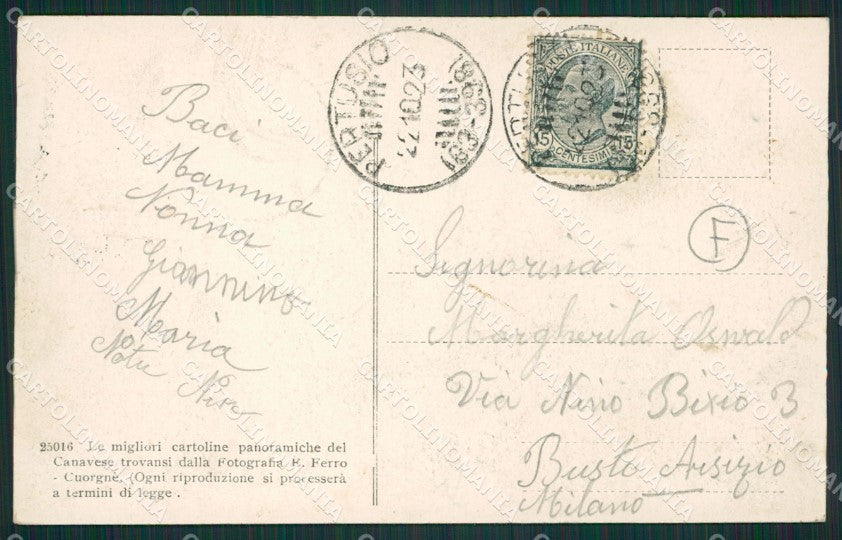 Baci
Mamma
Nonna
Giannino
Maria
25016 Le migliori cartoline panoramiche del
Canavese trovansi dalla Fotografia E. Ferro
- Cuorgnè. (Ogni riproduzione si processerà
a termini di legge.
PERTUSIO
22.10.23
POSTE ITALIANE
15 CENTESIMI 15
22.10.23
F
Signorina
Margherita Oswald
Via Nino Bixio 3
Busto Arsizio
Milano
CARTOLINOMANIA